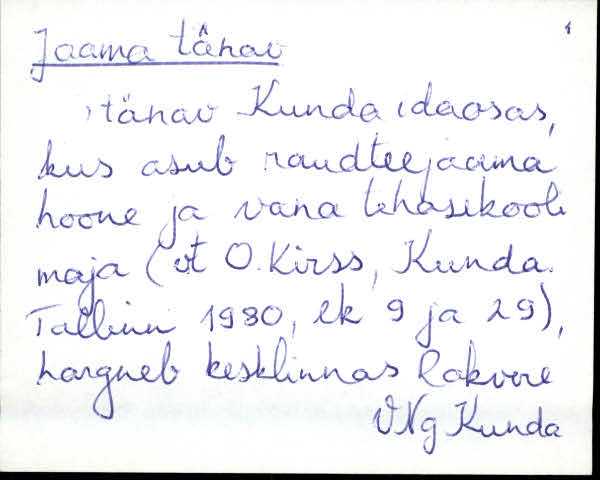 Jaama tänav
1
, tänav Kunda idaosas,
kus asub raudteejaama
hoone ja vana tehasekooli
maja (vt O. Kirss, Kunda.
Tallinn 1980, lk 9 ja 29),
hargneb kesklinnas Rakvere
VNg Kunda